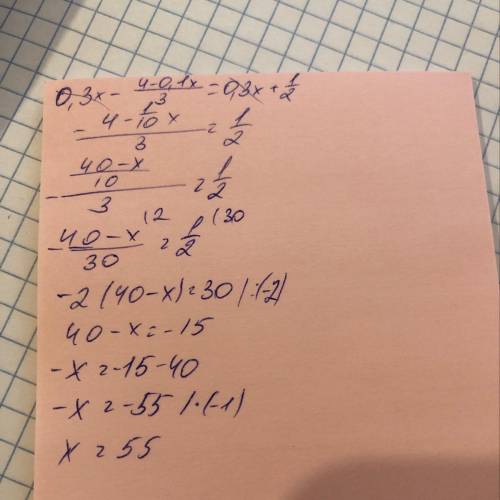 0,3x - (4-0,1x)/3 = 0,3x + 1/2
- (4 - 1/10 x)/3 = 1/2
- ((40-x)/10)/3 = 1/2
- (40-x)/30 (2 = 1/2 (30
-2(40-x)=30 |:(-2)
40-x=-15
-x=-15-40
-x=-55 |·(-1)
x=55